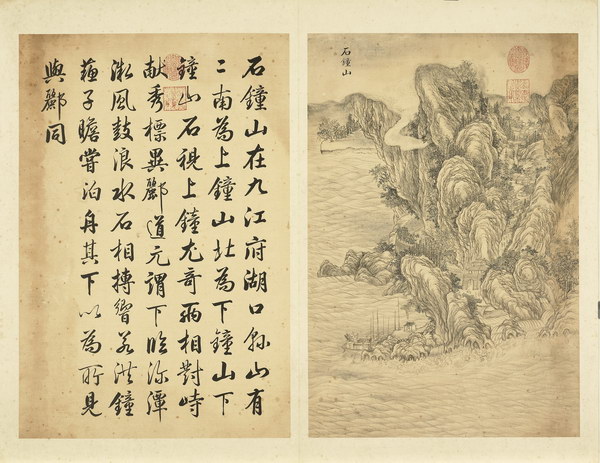 石鐘山
石鐘山在九江府湖口縣山有
二南為上鐘山北為下鐘山下
鐘山石視上鐘尤奇兩相對峙
献秀標異酈道元謂下臨深潭
微風鼓浪水石相搏響若洪鐘
蘓子瞻嘗泊舟其下以為所見
與酈同